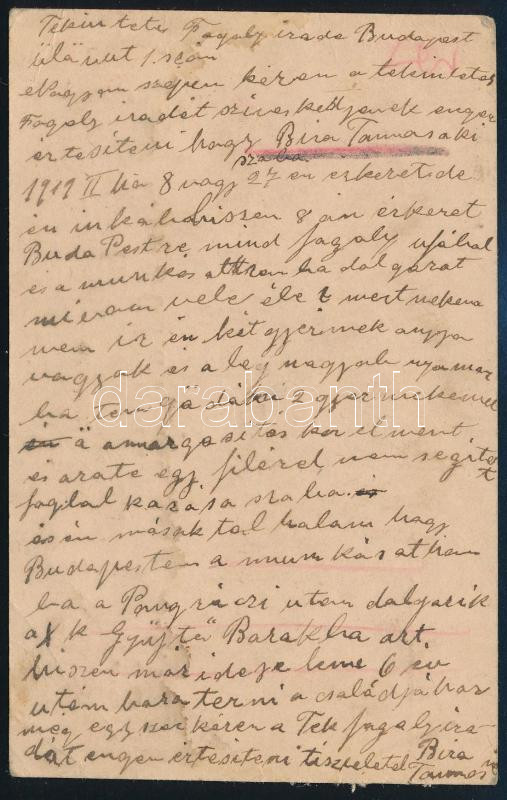 Tekintetes Fogoly iroda Budapest
üllői ut 1. szám
Nagyon szépen kérem a tekintetes
Fogoly irodát sziveskedjenek engem
értesiteni hogy Bira Tamas aki
szaba
1919 II hó 8 vagy 27 én érkeret ide
én inkáb hiszen 8 ján érkeret
Buda Pestre mind fogoly ujobol
és a munkás othonba dolgozot
mi van vele él e t mert nekem
nem ir én két gyermek anyja
vagyok és a leg nagyob nyomor
ba 2 gyermekemel
ő a morgositás kor el ment
és azota egy filérel nem segitet
foglal kozása szaba
és én másoktol halom hogy
Budapesten a munkás othon
ba a Pongráczi uton dolgozik
a X k Gyüjtő Barakba azt
hiszen már ideje lene 6 év
utem haza terni a családjához
még egyszer kérem a Tek fogoly iro
dát engem értesiteni tisztelettel Bira
Tamas né
darabanth